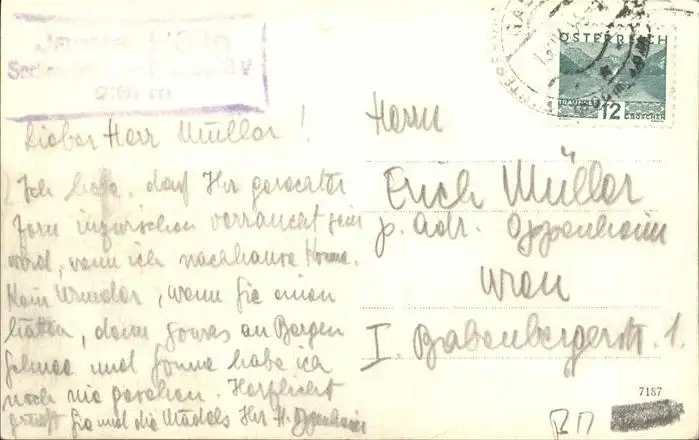 2160 m
ÖSTERREICH
12
GROSCHEN
Lieber Herr Müller!
Ich hoffe, dass Ihr gerechter
Zorn inzwischen verraucht sein
wird, wenn ich nachhause komme.
Kein Wunder, wenn Sie einen
hätten, denn sowas an Bergen
Schnee und Sonne habe ich
noch nie gesehen. Herzlichst
grüsst Sie und die Mädels Ihr H. Oppenheim
Herrn
Erich Müller
p. adr. Oppenheim
Wien
I. Babenbergerstr. 1.
7187